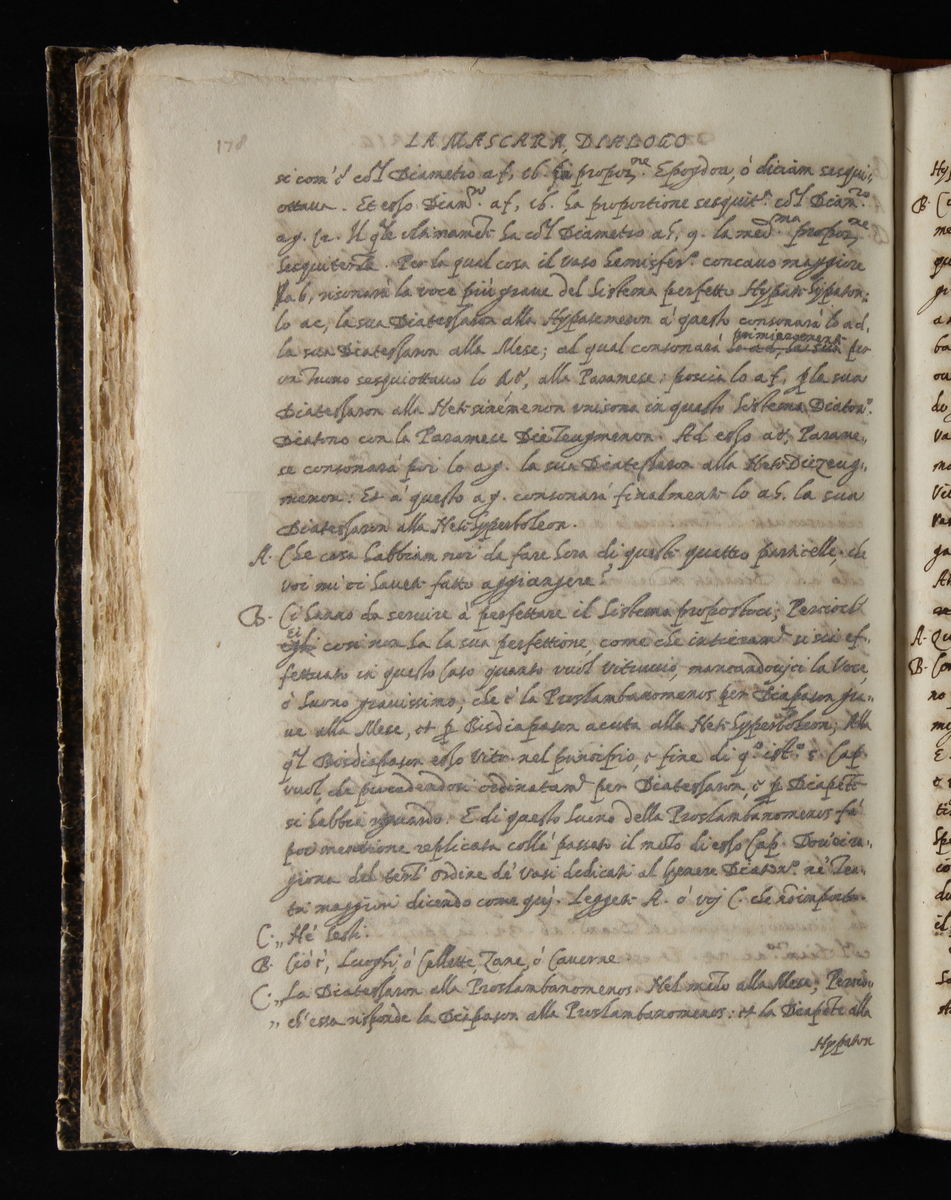 178
LA MASCARA, DIALOGO
si com'è col Diametro af, 16. ha propor.ne Epogdoa, ò diciam sesqui,
ottaua. Et esso Diam.ro af, 16. ha proportione sesquit.a col Diam.ro
ag. 12. Il q̃le hà col Diametro ah, 9. la med.ma propor.ne
sesquiterza. Per la qual cosa il uaso hemisfer.o concauo maggiore
ab, risonarà la voce più graue del Sistema perfetto Hypate Hypaton;
lo ae, la sua Diatessaron alla Hypatemeson à questo consonarà lo ad.
la sua Diatessaron alla Mese; al qual consonarà primieramente lo ad, la sua per
un Tuono sesquiottauo lo Ae, alla Paramese; poscia lo af, p la sua
Diatessaron alla Nete sinémenon vnisona in questo Sistema Diaton.o
Diatono con la Paramese DieZeugmenon. Ad esso ae, Parame,,
se consonarà poi lo ag. la sua Diatessaron alla Nete Diezeug,
menon: Et à questo ag. consonarà finalmente lo ah. la sua
Diatessaron alla Nete Hyperboleon.
A. Che cosa habbiam noi da fare hora di queste quattro particelle, che
voi mi ci hauete fatto aggiungere
B. Ci hanno da seruire à perfettare il Sistema propostoci; Percioch'
ei egli così non ha la sua perfettione, come che intieram.te si sia ef,
fettuato in questo Caso quanto vuol Vitruuio, mancandouisi la Voce,
ò suono grauissimo; che è la Proslambanomenos per Diapason gra,
ue alla Mese, et p Bisdiapason acuta alla Nete Hyperboleon; Alla
q̃l Bisdiapason esso Vitr. nel principio, e fine di q.o ist.o 5. Cap.
vuol, che procedendosi ordinatam.te per Diatessaron, e p Diapente
si habbia riguardo. E di questo suono della Proslambanomenos fà
poi mentione replicata colle passato il mezo di esso Cap. Doue ra,
giona del terz' ordine de' vasi dedicati al Genere Diaton.o ne' Tea,
tri maggiori dicendo come quì. Leggete A. ò voi C. che nõ importa.
C. ,, Ne' sesti.
B. Ciò è, Luoghi, ò Cellette, Zane, ò Cauerne
C. ,, La Diatessaron alla Proslambanomenos. Nel mezo alla Mese; Percio,
,, ch'essa risponde la Diapason alla Proslambanomenos: et la Diapẽte alla
Hypaton